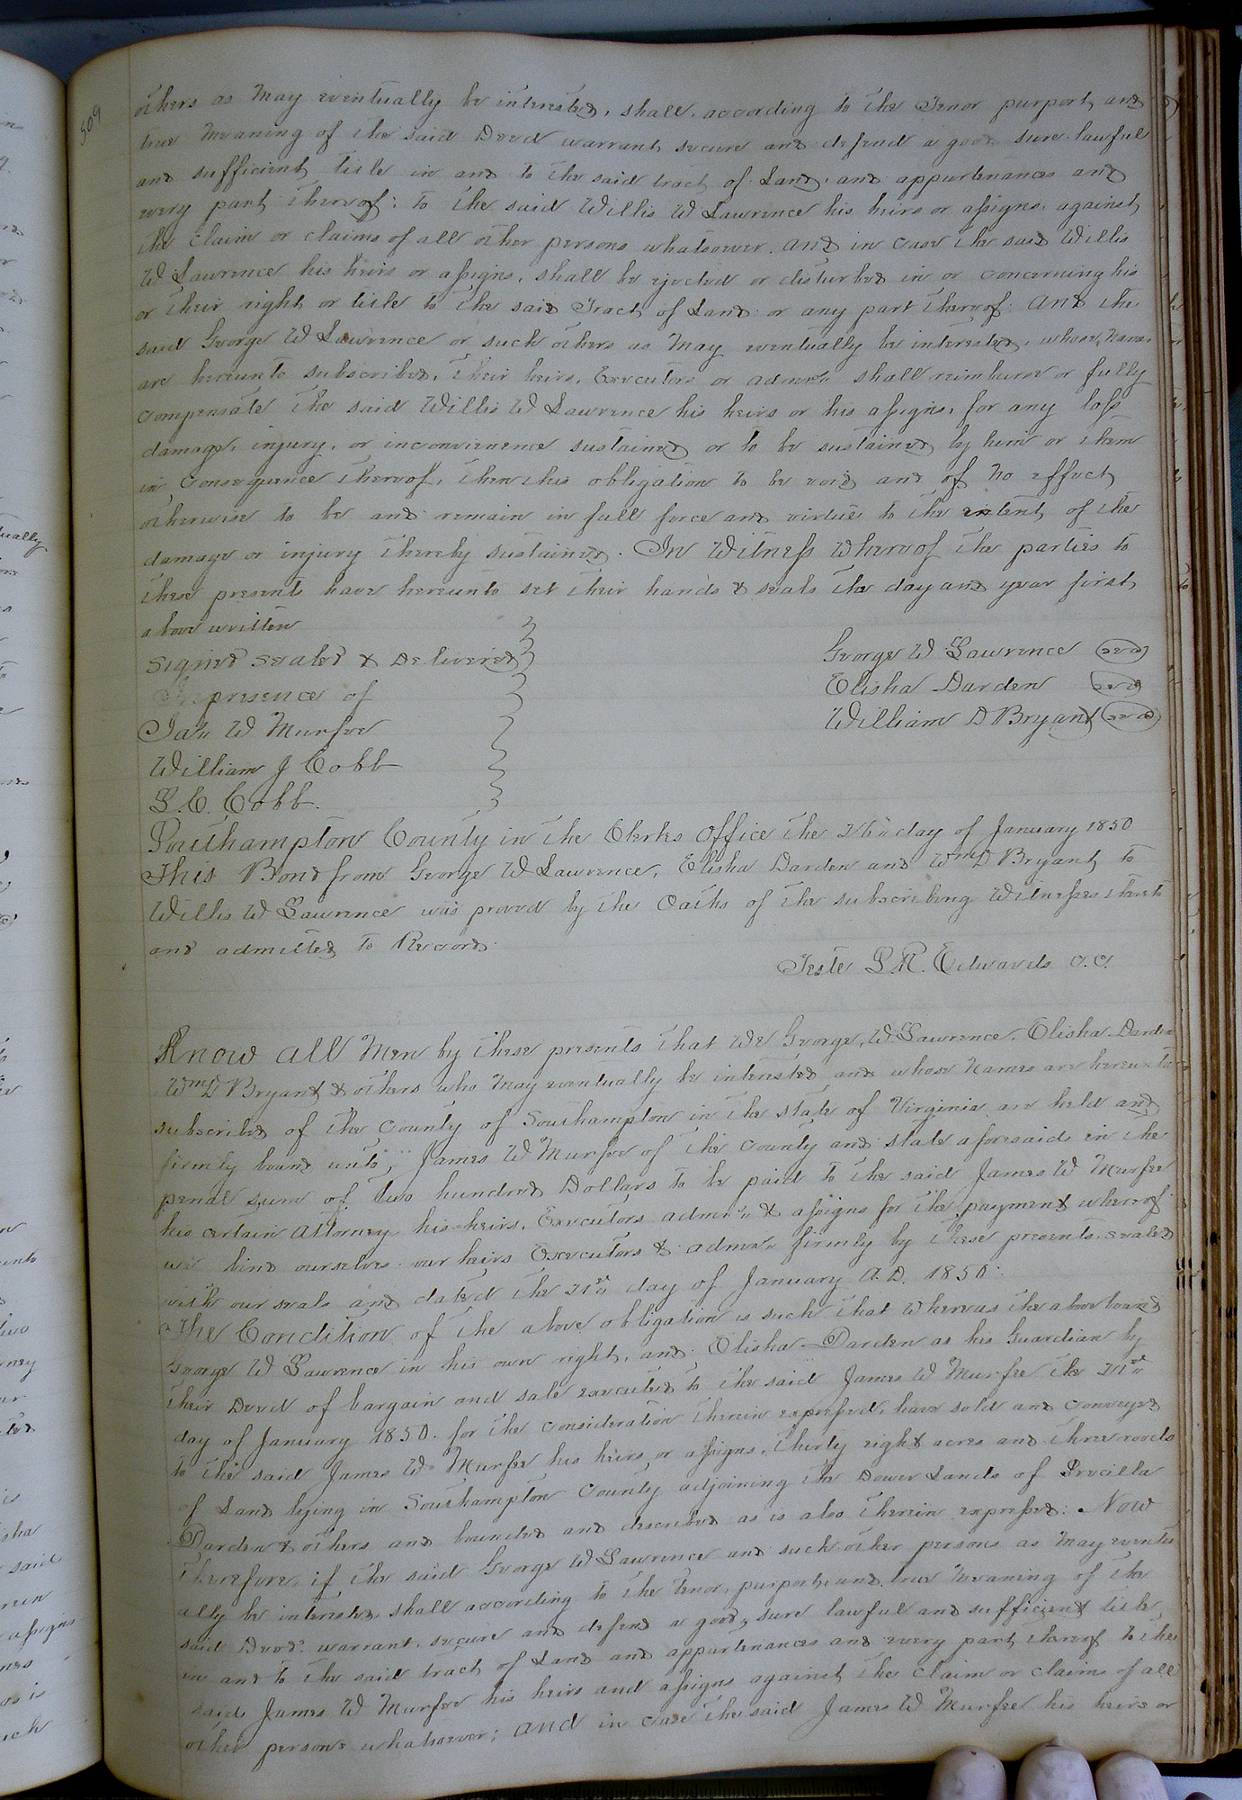 509
others as May eventually be interested, shall, according to the Tenor purport, and
true Meaning of the said Deed warrant, secure and defend a good sure lawful
and sufficient, title in and to the said tract of Land, and appurtenances and
every part thereof: to the said Willis W Lawrence his heirs or assigns, against
the claim or claims of all other persons whatsoever. And in case the said Willis
W Lawrence his heirs or assigns, shall be ejected or disturbed in or concerning his
or their right or title to the said Tract of Land or any part thereof: And the
said George W Lawrence or such others as May eventually be interested, whose names
are hereunto subscribed, their heirs, Executors or admors shall reimburse or fully
compensate the said Willis W Lawrence his heirs or his assigns, for any loss
damage, injury, or inconvenience sustained or to be sustained by him or them
in Consequence thereof, then this obligation to be void and of No effect,
otherwise to be and remain in full force and virtue to the extent of the
damage or injury thereby sustained. In Witness Whereof the parties to
these presents have hereunto set their hands & seals the day and year first
above written
Signed Sealed & Delivered
In presence of
Jas W Murfee
William J Cobb
L.C. Cobb.
George W Lawrence seal
Elisha Darden seal
William D Bryant seal
Southampton County in the Clerks Office the day of January 1850
This Bond from George W Lawrence, Elisha Darden and Wm D Bryant to
Willis W Lawrence was proved by the Oaths of the subscribing Witnesses thereto
and admitted to Record.
Teste L.R. Edwards C.C.
Know all Men by these presents that We George W Lawrence, Elisha Darden
Wm D Bryant & others who May eventually be interested and whose Names are hereunto
subscribed of the County of Southampton in the state of Virginia are held and
firmly bound unto James W Murfee of the County and state aforesaid in the
penal sum of Two hundred Dollars to be paid to the said James W Murfee
his certain Attorney his heirs, Executors admors & assigns for the payment whereof
we bind ourselves our heirs Executors & admors firmly by these presents sealed
with our seals and dated the 21st day of January A.D. 1850.
The Condition of the above obligation is such that Whereas the above bound
George W Lawrence in his own right, and Elisha Darden as his Guardian by
their Deed of bargain and sale executed to the said James W Murfee the 21st
day of January 1850. for the consideration therein expressed, have sold and conveyed
to the said James W Murfee his heirs or assigns, thirty eight acres and three roods
of Land lying in Southampton County adjoining the Dower Lands of Precilla
Darden & others and bounded and described as is also therein expressed: Now
Therefore, if the said George W Lawrence and such other persons as May eventu
ally be interested, shall according to the Tenor, purport, and true Meaning of the
said Deed warrant, secure and defend a good, sure lawful and sufficient title
in and to the said tract of Land and appurtenances and every part thereof to the
said James W Murfee his heirs and assigns against the Claim or claims of all
other persons whatsoever; And in case the said James W Murfee his heirs or